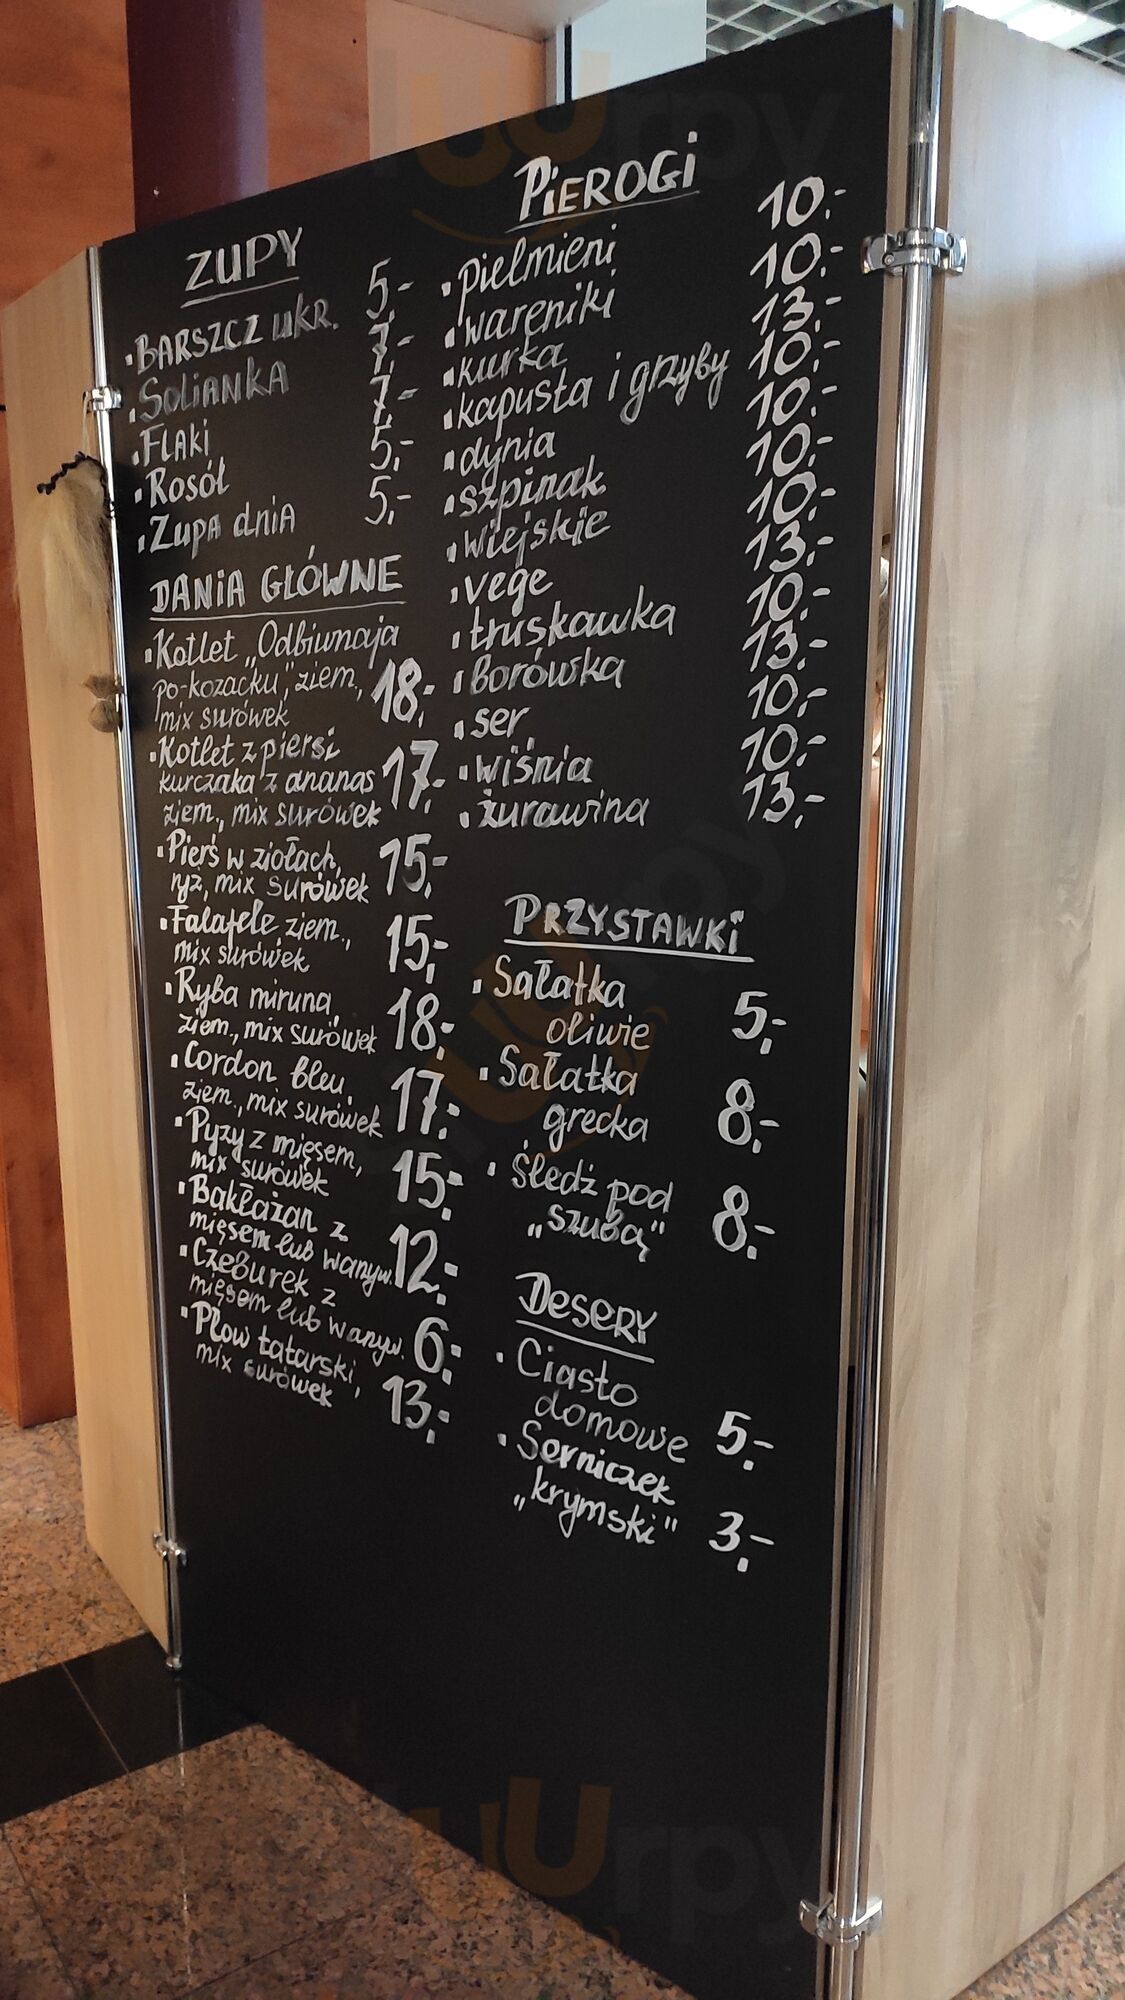 ZUPY
BARSZCZ UKR. 5,-
SOLIANKA 7,-
FLAKI 7,-
ROSÓŁ 5,-
ZUPA dNIA 5,-
DANIA GŁÓWNE
Kotlet „Odbiwnaja
po-kozacku", ziem., 18,-
mix surówek
Kotlet z piersi
kurczaka z ananas 17,-
ziem., mix surówek
Pierś w ziołach, 15,-
ryż, mix surówek
Falafele ziem., 15,-
mix surówek
Ryba miruna, 18,-
ziem., mix surówek
Cordon bleu, 17,-
ziem., mix surówek
Pyzy z mięsem, 15,-
mix surówek
Bakłażan z
mięsem lub warzyw. 12,-
Czeburek z
mięsem lub warzyw. 6,-
Płow tatarski, 13,-
mix surówek
PIEROGI
pielmieni 10,-
wareniki 10,-
kurka 13,-
kapusta i grzyby 10,-
dynia 10,-
szpinak 10,-
wiejskie 10,-
vege 13,-
truskawka 10,-
borówka 13,-
ser 10,-
wiśnia 10,-
żurawina 13,-
PRZYSTAWKI
Sałatka
oliwie 5,-
Sałatka
grecka 8,-
śledź pod
„szubą" 8,-
DESERY
Ciasto
domowe 5,-
Serniczek
„krymski" 3,-